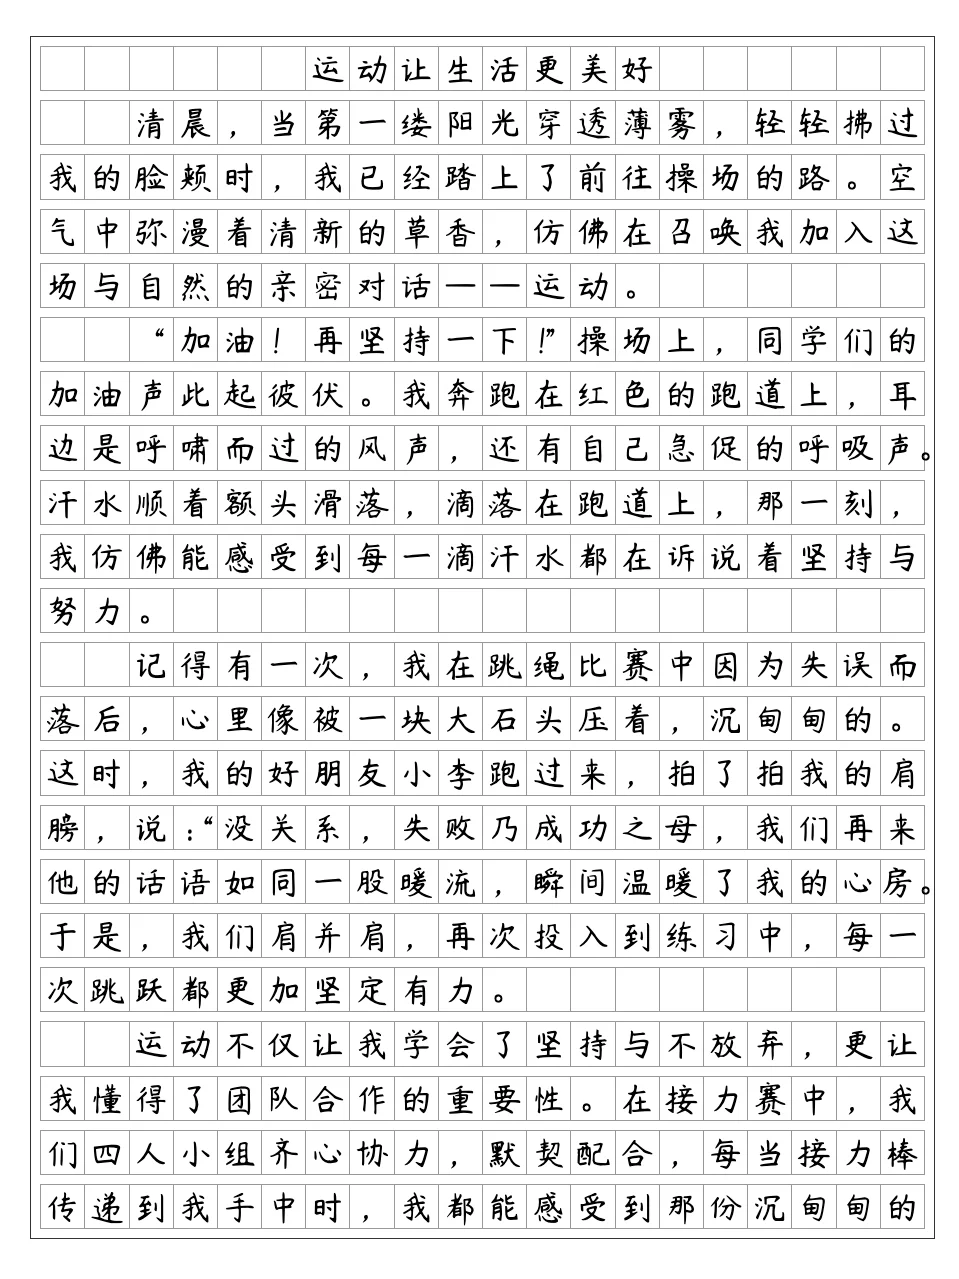 运动让生活更美好
清晨，当第一缕阳光穿透薄雾，轻轻拂过
我的脸颊时，我已经踏上了前往操场的路。空
气中弥漫着清新的草香，仿佛在召唤我加入这
场与自然的亲密对话——运动。
“加油！再坚持一下！”操场上，同学们的
加油声此起彼伏。我奔跑在红色的跑道上，耳
边是呼啸而过的风声，还有自己急促的呼吸声。
汗水顺着额头滑落，滴落在跑道上，那一刻，
我仿佛能感受到每一滴汗水都在诉说着坚持与
努力。
记得有一次，我在跳绳比赛中因为失误而
落后，心里像被一块大石头压着，沉甸甸的。
这时，我的好朋友小李跑过来，拍了拍我的肩
膀，说：“没关系，失败乃成功之母，我们再来
他的话语如同一股暖流，瞬间温暖了我的心房。
于是，我们肩并肩，再次投入到练习中，每一
次跳跃都更加坚定有力。
运动不仅让我学会了坚持与不放弃，更让
我懂得了团队合作的重要性。在接力赛中，我
们四人小组齐心协力，默契配合，每当接力棒
传递到我手中时，我都能感受到那份沉甸甸的